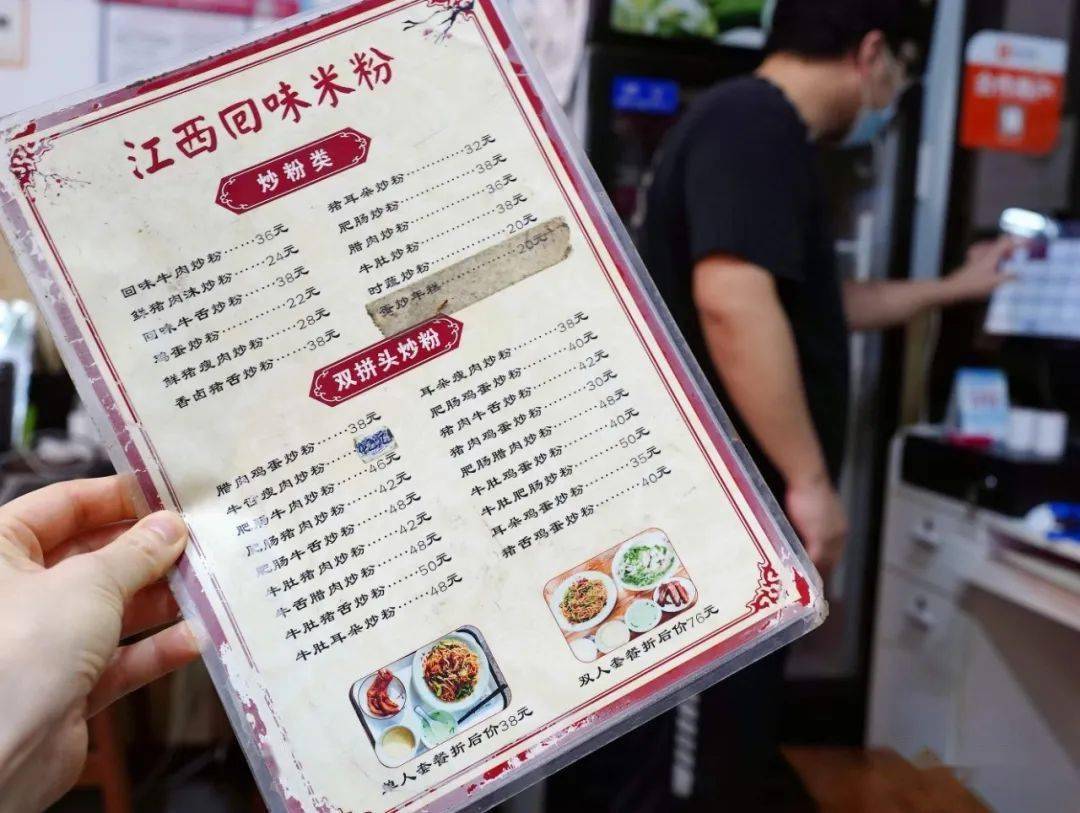 江西回味米粉
炒粉类
回味牛肉炒粉………36元
鲜猪肉沫炒粉……24元
回味牛舌炒粉……38元
鸡蛋炒粉…………22元
鲜猪瘦肉炒粉……28元
香卤猪舌炒粉……38元
猪耳朵炒粉…………32元
肥肠炒粉……………38元
腊肉炒粉……………36元
牛肚炒粉……………38元
时蔬炒粉……………20元
蛋炒年糕……………20元
双拼头炒粉
腊肉鸡蛋炒粉………38元
牛舌瘦肉炒粉
肥肠牛肉炒粉………46元
肥肠猪肉炒粉………42元
肥肠牛舌炒粉………48元
牛肚猪肉炒粉………42元
牛舌腊肉炒粉………48元
牛肚猪舌炒粉………50元
牛肚耳朵炒粉………48元
耳朵瘦肉炒粉………38元
肥肠鸡蛋炒粉………40元
猪肉牛舌炒粉………42元
猪肉鸡蛋炒粉………30元
肥肠腊肉炒粉………48元
牛肚鸡蛋炒粉………40元
牛肚肥肠炒粉………50元
耳朵鸡蛋炒粉………35元
猪舌鸡蛋炒粉………40元
单人套餐折后价38元
双人套餐折后价76元